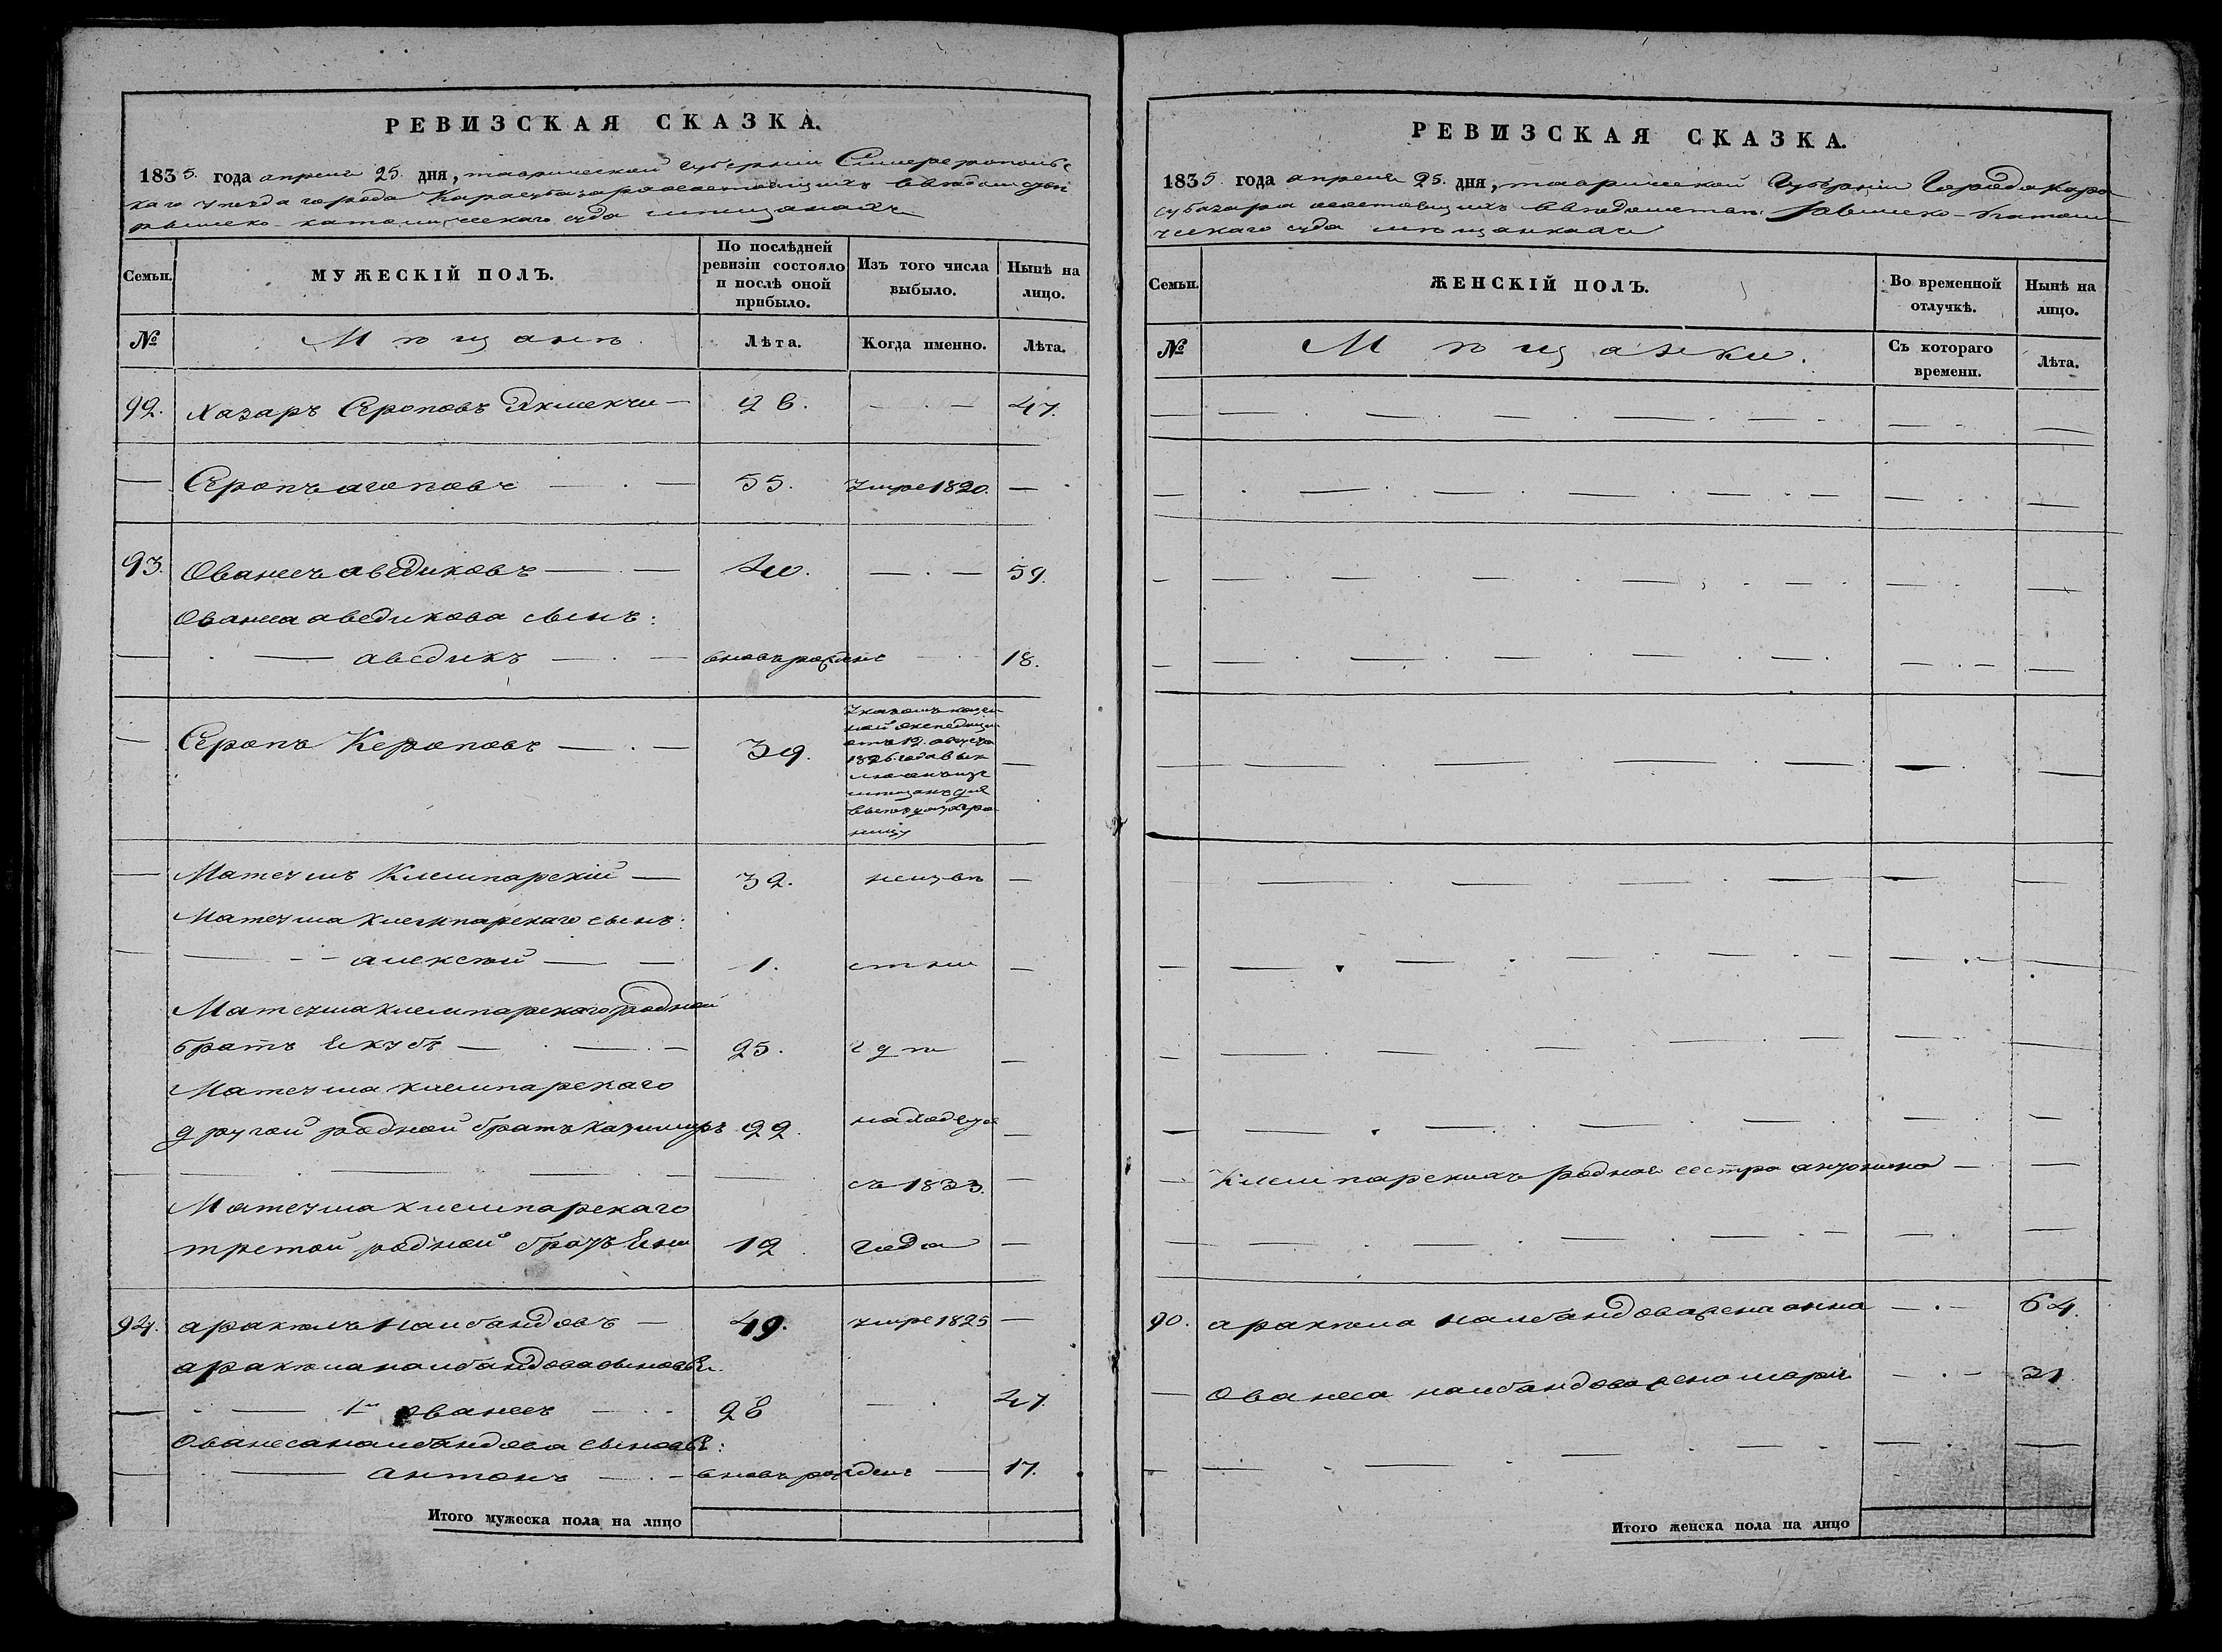 РЕВИЗСКАЯ СКАЗКА.
1835. года апреля 25. дня, таврической губернии Симферопольс
каго уезда города Карасубазара состоящихъ в ведомстве
римско-католическаго суда мещанахъ
Семьи.
МУЖЕСКІЙ ПОЛЪ.
По послѣдней
ревизіи состояло
и послѣ оной
прибыло.
Изъ того числа
выбыло.
Нынѣ на
лицо.
№
Мѣщанъ.
Лѣта.
Когда именно.
Лѣта.
92. Хазаръ Сероповъ Экмекчи — 28. — . — 47.
— Серопъ агоповъ — . — 55. умре 1820. —
93. Ованесъ аведиковъ — — 40. — . — 59.
Ованеса аведикова сынъ:
— аведикъ — . — вновь рожденъ 18.
— Серопъ Кероповъ — . — 39.
Указомъ казен
ной экспедиции
отъ 12. августа
1826. года вык
лючонъ изъ
мещанъ для
выезда загра
ницу
— Матеушъ Клемпарскій — 32. неизве —
Матеуша клемпарскаго сынъ:
— алексей — — 1. стно —
Матеуша клемпарскаго родной
братъ Якубъ — . — 25. где —
Матеуша клемпарскаго
другой родной братъ казимиръ 22. находятся —
съ 1833.
Матеуша клемпарскаго
третой родной братъ 12. года —
94. аракелъ налбандовъ — 49. умре 1825 —
аракела налбандова сыновья.
— 1й ованесъ — 28 — . 47.
Ованеса налбандова сыновья:
— антонъ — . — вновь рожденъ — 17.
Итого мужеска пола на лицо
РЕВИЗСКАЯ СКАЗКА.
1835. года апреля 25. дня, таврической Губернии Города Кара
субазара состоящихъ в ведомстве Римско-Католи
ческаго суда мещанкахъ
Семьи.
ЖЕНСКІЙ ПОЛЪ.
Во временной
отлучкѣ.
Нынѣ на
лицо.
№
Мѣщанки.
Съ котораго
времени.
Лѣта.
— Клемпарскихъ родная сестра антонина — —
90. аракела налбандова жена анна — . — 64.
— Ованеса налбандова жена мария — . — 31
Итого женска пола на лицо